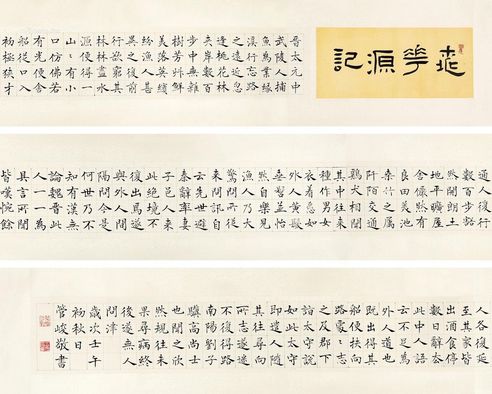 桃花源記
晉太元中
武陵人捕
魚為業緣
溪行忘路
之遠近忽
逢桃花林
夾岸數百
步中無雜
樹芳艸鮮
美落英繽
紛漁人甚
異之復前
行欲窮其
林林盡水
源便得一
山:有小
口仿佛若
有光便舍
船從口入
初極狹才
通人復行
數百步豁
然開朗土
地平曠屋
舍儼然有
良田美池
桑竹之屬
阡陌交通
鷄犬相聞
其中往來
種作男女
衣着悉如
外人黃髮
垂髫並怡
然自樂見
漁人乃大
驚問所從
來問訊自
云先世避
秦率妻
子邑人來
此絕境不
復出焉遂
與外人間
隔問今是
何世乃不
知有漢無
論魏晉此
人一一為
具言所聞
皆嘆惋餘
人各復延
至其家皆
出酒食停
數日辭去
此中人語
云不足為
外人道也
既出得其
船便扶向
路處:志
之及郡下
詣太守說
如此太守
即遣人隨
其往尋向
所志遂迷
不復得路
南陽劉子
驥高尚士
也聞之欣
然規往未
果尋病終
後遂無人
問津
歲次壬午
初秋日
管峻敬書